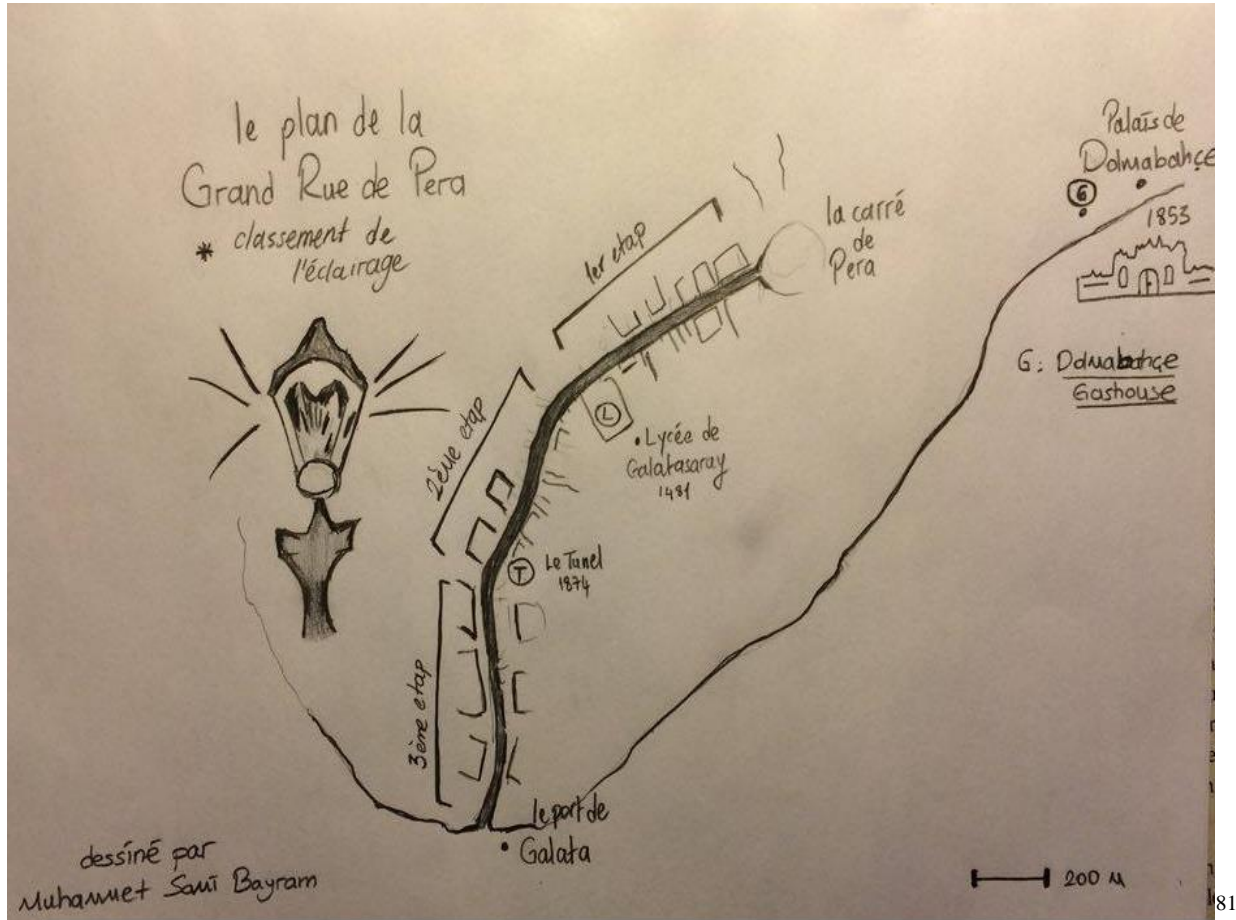 le plan de la
Grand Rue de Pera
* classement de
l'éclairage
1er etap
la carré
de
Pera
Palais de
Dolmabahçe
G
1853
G: Dolmabahçe
Gashouse
2ème etap
L
Lycée de
Galatasaray
1481
T
Le Tunel
1874
3ème etap
le port de
Galata
dessiné par
Muhammet Sami Bayram
200 M
81